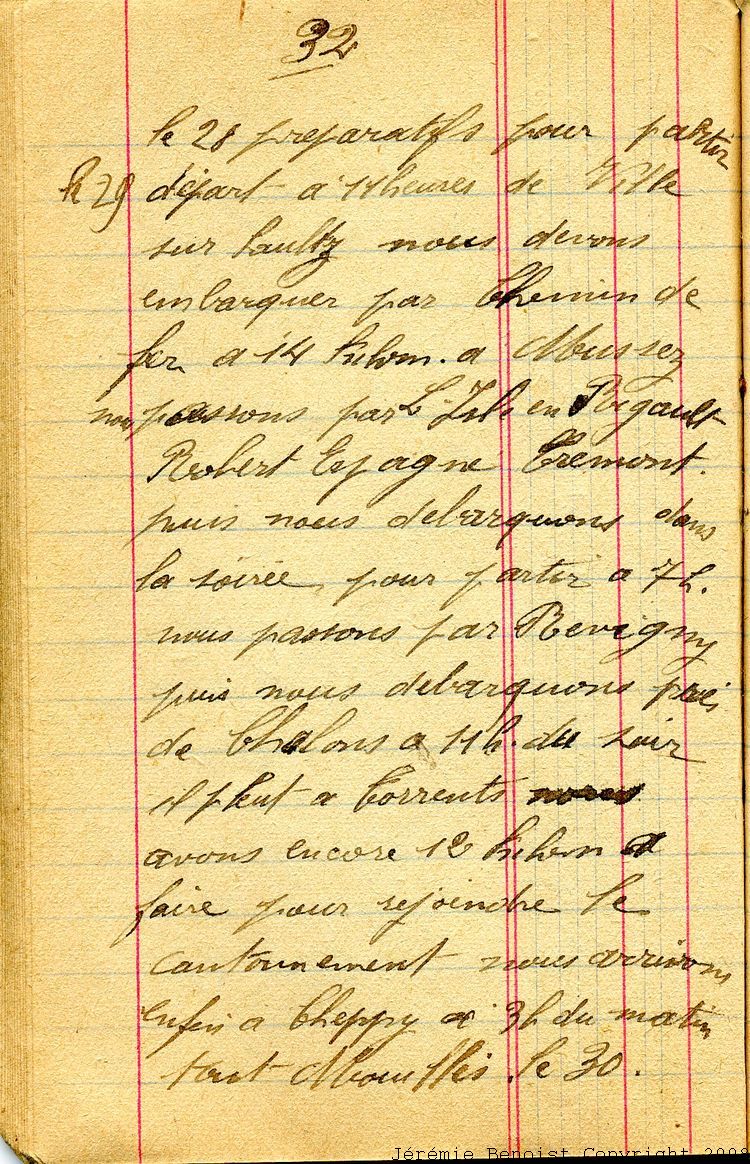 32
le 28 preparatifs pour partir
le 29 départ a 11 heures de Ville
sur Saultz nous devons
embarquer par Chemin de
fer a 14 kilom. a Mussez
nous passons par L'Isle en Rigault
Robert Espagne Tremont.
puis nous debarquons dans
la soirée, pour partir a 7 h.
nous passons par Revigny
puis nous debarquons près
de Chalons a 11 h. du soir
il pleut a torrents nous
avons encore 12 kilom a
faire pour rejoindre le
cantonnement nous arrivons
enfin a Cheppy a 3 h du matin
tout Mouillés. le 30.
Jérémie Benoist Copyright